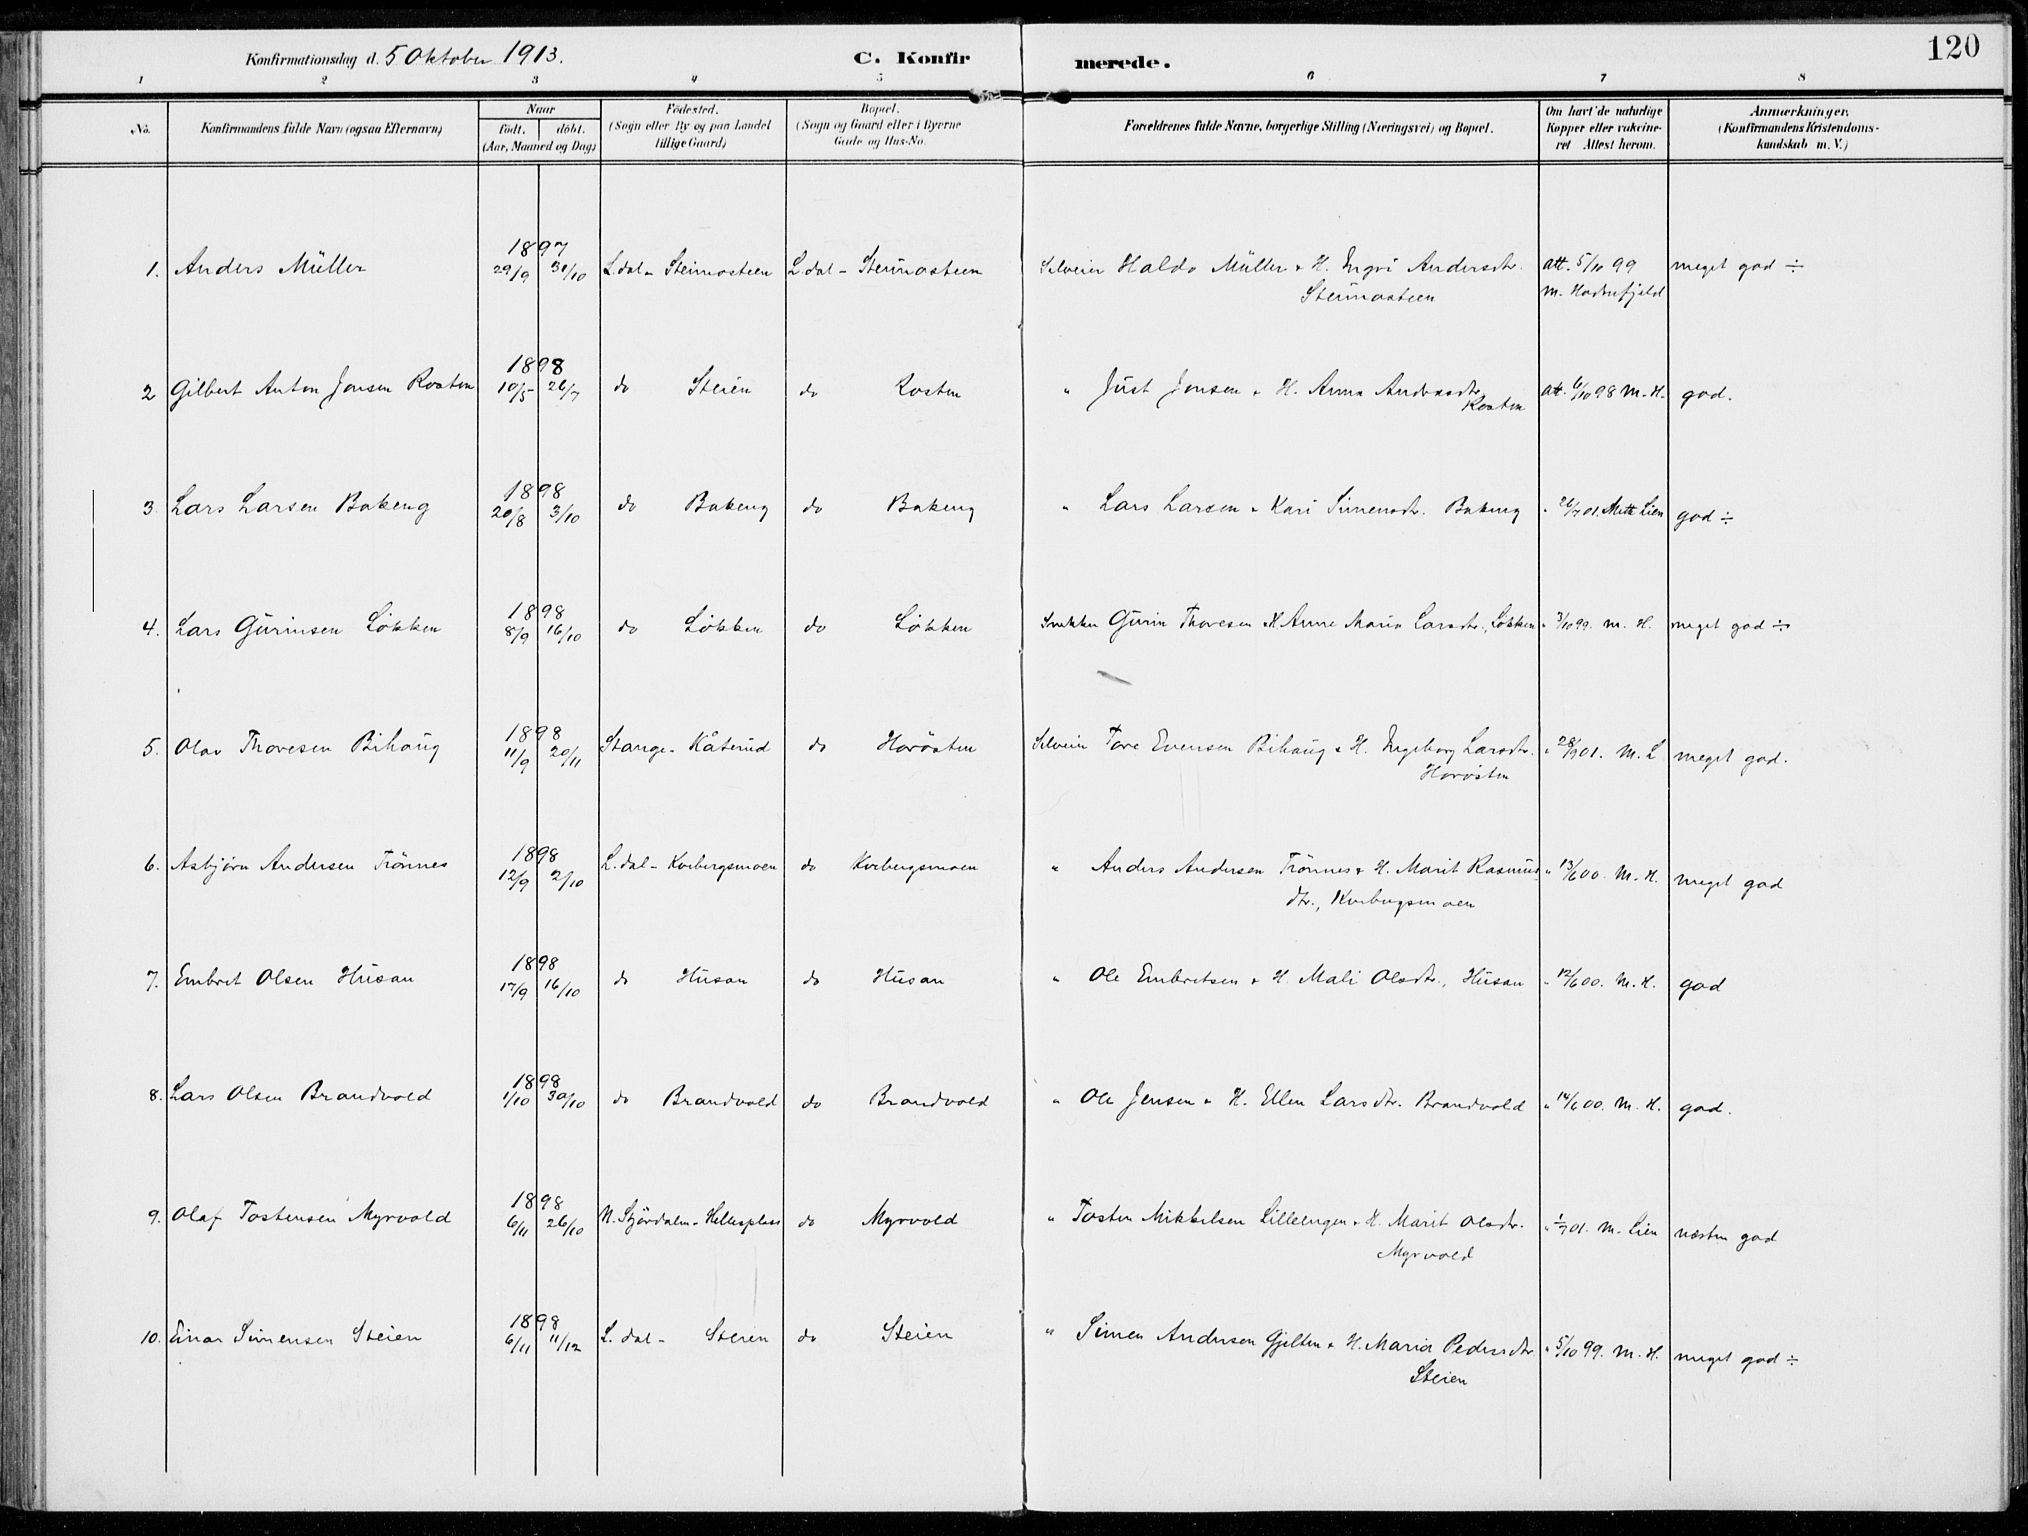 Konfirmationsdag d. 5 Oktober 1913. C. Konfirmerede. 120
1 2 3 4 5 6 7 8
No. Konfirmandens fulde Navn (ogsaa Efternavn) Naar født. døbt. (Aar, Maaned og Dag) Fødested. (Sogn eller By og paa Landet tillige Gaard) Bopæl. (Sogn og Gaard eller i Byerne Gade og Hus-No. Forældrenes fulde Navne, borgerlige Stilling (Næringsvei) og Bopæl. Om havt de naturlige Kopper eller vakcineret Attest herom. Anmærkninger. (Konfirmandens Kristendomskundskab m. V.)
1. Anders Müller 1897 29/9 31/10 L.dal - Steimosteen L.dal - Steimosteen Selveier Haldo Müller & H. Ingri Andersdtr. Steimosteen att. 5/10 99 m. Hodnefjeld meget god ÷
2 Gilbert Anton Jonsen Rosten 1898 10/5 26/7 do Steien do Rosten " Just Jonsen & H. Anna Andersdtr. Rosten att. 6/10 98 M. H. god.
3. Lars Larsen Bakeng 1898 20/8 3/10 do Bakeng do Bakeng " Lars Larsen & Kari Simensdtr. Bakeng " 26/7 01. Mette Lien god ÷
4. Lars Gurinsen Løkken 1898 8/9 16/10 do Løkken do Løkken Snekker Gurin Thoresen & H Anne Maria Larsdtr., Løkken " 3/10 99. m. H. meget god ÷
5. Olav Thoresen Bihaug 1898 11/9 20/11 Stange - Kåterud do Horøsten Selveier Tore Evensen Bihaug & H. Ingeborg Larsdtr. Horøsten " 28/9 01. M. L meget god.
6. Asbjørn Andersen Trønnes 1898 12/9 2/10 L.dal - Kvebergsmoen do Kvebergsmoen " Anders Andersen Trønnes & H. Marit Rasmusdtr., Kvebergsmoen " 13/6 00. M. H. meget god
7. Embret Olsen Husan 1898 17/9 16/10 do Husan do Husan " Ole Embretsen & H. Mali Olsdtr., Husan " 12/6 00. M. H. god
8. Lars Olsen Brandvold 1898 1/10 30/10 do Brandvold do Brandvold " Ole Jensen & H. Ellen Larsdtr. Brandvold " 14/6 00. M. H. god.
9. Olaf Tostensen Myrvold 1898 6/11 26/10 N. Stjørdalen - Hellesplass do Myrvold " Tosten Mikkelsen Lilleengen & H. Marit Olsdtr. Myrvold " 1/7 01. M. Lien næsten god
10. Einar Simensen Steien 1898 6/11 11/12 L.dal - Steien do Steien " Simen Andersen Gjelten & H. Maria Pedersdtr. Steien " 5/10 99. M. H. meget god ÷